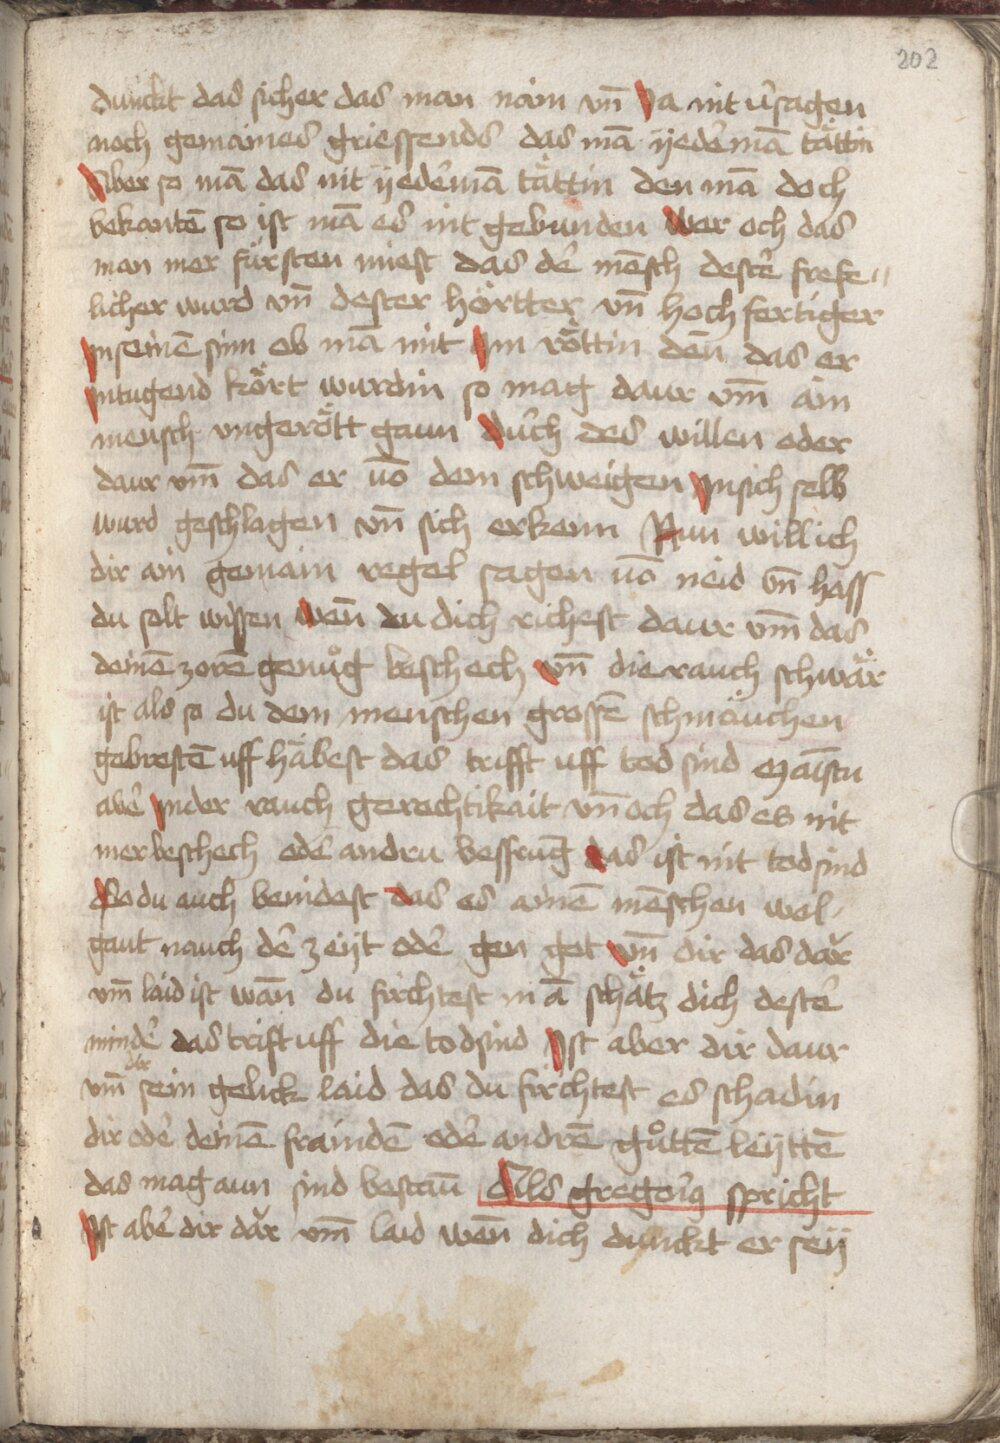 202
dunckt das sicher das man näm vn̄ Da nit v̂sagen
noch gemaines griessends das mā ÿedêmā tättin
Aber so mā das nit ÿedêmā tättin den mā doch
bekantē so ist mā es nit gebunden Wer och das
man mer fürsten miest das dê mēsch destê frefe„
licher wurd vn̄ dester hörtter vn̄ hoch fertiger
Jn seinē sinn ob mā mit Jm röttin den̄ das er
Jntugend kört wurdin so mag daur vm̄ ain
mensch vngerött gaun Dûch des willen oder
daur vm̄ das er vō dem schweigen Jnsich selb
wurd geschlagen vn̄ sich erkenn Nun will ich
dir ain gemain regel sagen vō neid vn̄ hass
du solt wissen wen̄ du dich richest daur vm̄ das
deinē zorē genuͦg beschech vn̄ die rauch schwär
ist als so du dem menschen grossē schmäuchen
gebrestē uff häbest das trifft uff tod sind Maīstu
abê Jn der rauch gerechtikait vn̄ och das es nit
mer beschech odê andru bessrunḡ das ist nit tod sind
So du auch beinidest das es ainē mēschen wol
gaut nauch dê zeÿt odê gen got vn̄ dir das dar
vm̄ laid ist wan̄ du firchtest mā schätz dich destê
mindê das trift uff die todsind Jst aber dir daur
vm̄ dir sein gelick laid das du firchtest es schadin
dir odê deinē fraindē odê andrē guͦttē leÿttē
das mag aun sind bestaū Als gregori9 spricht
Jst abê dir dar vm̄ laid wen̄ dich dunckt er seÿ